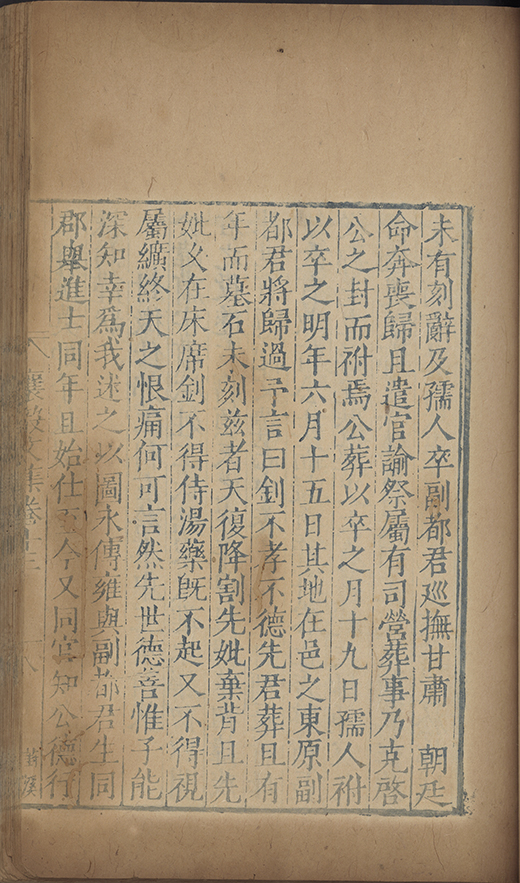 未有刻辭及孺人卒副都君廵撫甘肅　朝廷
命奔喪歸且遣官諭祭屬有司營葬事乃克啓
公之封而祔焉公葬以卒之月十九日孺人祔
以卒之明年六月十五日其地在邑之東原副
都君將歸過予言曰釗不孝不德先君葬且有
年而墓石未刻兹者天復降割先妣棄背且先
妣乂在床席釗不得侍湯藥旣不起又不得視
屬纊終天之恨痛何可言然先世德善惟子能
深知幸爲我述之以圖永傳雍與副都君生同
郡舉進士同年且始仕至今又同官知公德行
襄毅文集卷十三